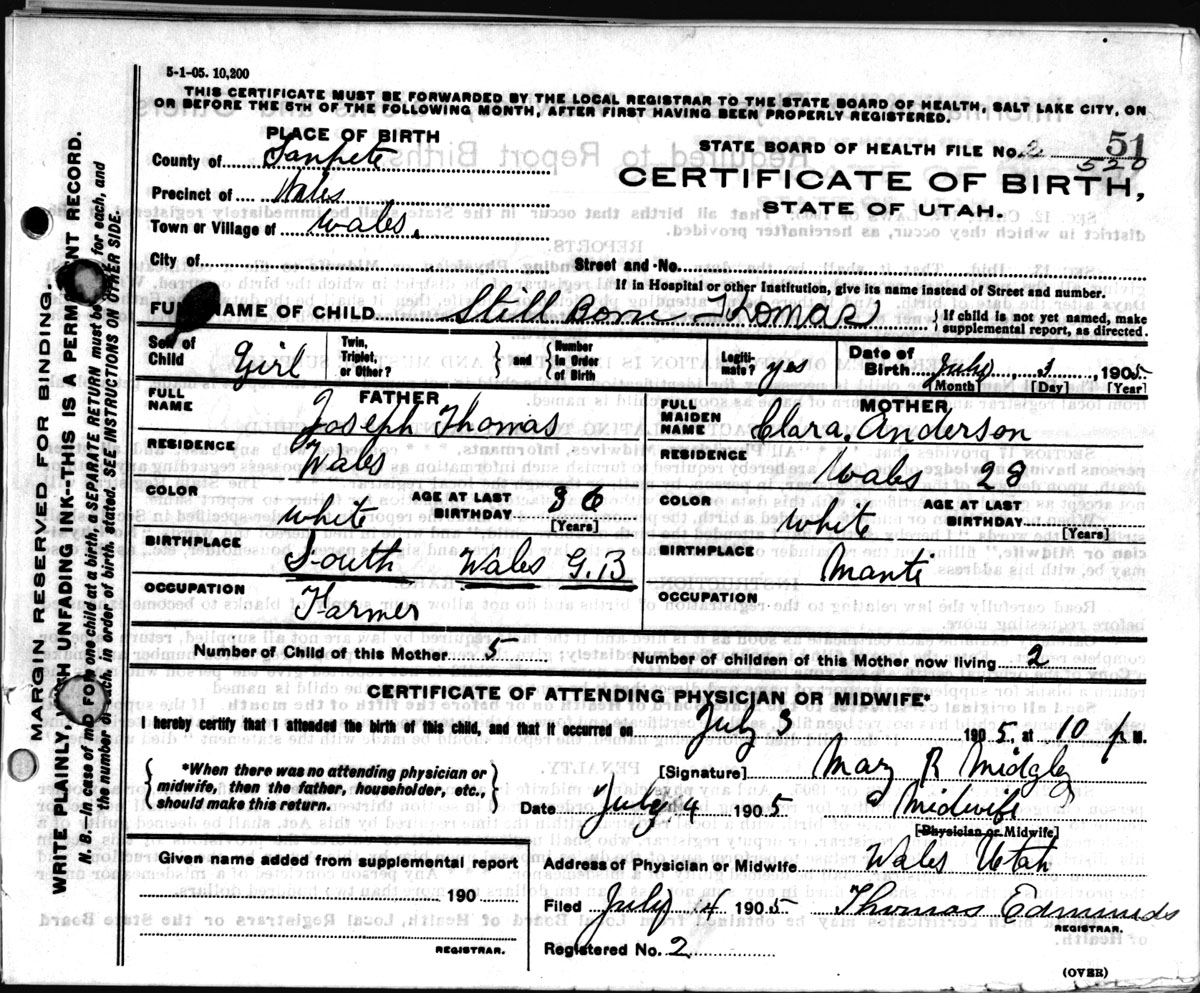 5-1-05. 10,200
THIS CERTIFICATE MUST BE FORWARDED BY THE LOCAL REGISTRAR TO THE STATE BOARD OF HEALTH, SALT LAKE CITY, ON
OR BEFORE THE 5TH OF THE FOLLOWING MONTH, AFTER FIRST HAVING BEEN PROPERLY REGISTERED.
PLACE OF BIRTH
County of Sanpete
Precinct of Wales
Town or Village of Wales.
STATE BOARD OF HEALTH FILE No. 2 51
520
CERTIFICATE OF BIRTH,
STATE OF UTAH.
City of Street and No.
If in Hospital or other Institution, give its name instead of Street and number.
FULL NAME OF CHILD Still Born Thomas } If child is not yet named, make supplemental report, as directed.
Sex of Child Girl Twin, Triplet, or Other? } and { Number in Order of Birth Legiti-mate? yes Date of Birth July 3 1905
(Month) [Day] [Year]
FATHER
FULL NAME Joseph Thomas
RESIDENCE Wales
COLOR white AGE AT LAST BIRTHDAY 36
[Years]
BIRTHPLACE South Wales G.B
OCCUPATION Farmer
MOTHER
FULL MAIDEN NAME Clara Anderson
RESIDENCE Wales 28
COLOR White AGE AT LAST BIRTHDAY
[Years]
BIRTHPLACE Manti
OCCUPATION
Number of Child of this Mother 5 Number of children of this Mother now living 2
CERTIFICATE OF ATTENDING PHYSICIAN OR MIDWIFE*
I hereby certify that I attended the birth of this child, and that it occurred on July 3 1905, at 10 p. M.
{ *When there was no attending physician or
midwife, then the father, householder, etc.,
should make this return. }
[Signature] Mary R Midgley
Date July 4 1905 a Midwife
[Physician or Midwife]
Given name added from supplemental report
190
REGISTRAR.
Address of Physician or Midwife Wales Utah
Filed July 4 1905 Thomas Edmunds
REGISTRAR.
Registered No. 2
(OVER)
MARGIN RESERVED FOR BINDING.
WRITE PLAINLY, WITH UNFADING INK--THIS IS A PERMANENT RECORD.
N. B.--In case of more than one child at a birth, a SEPARATE RETURN must be made for each, and
the number of each, in order of birth, stated. SEE INSTRUCTIONS ON OTHER SIDE.